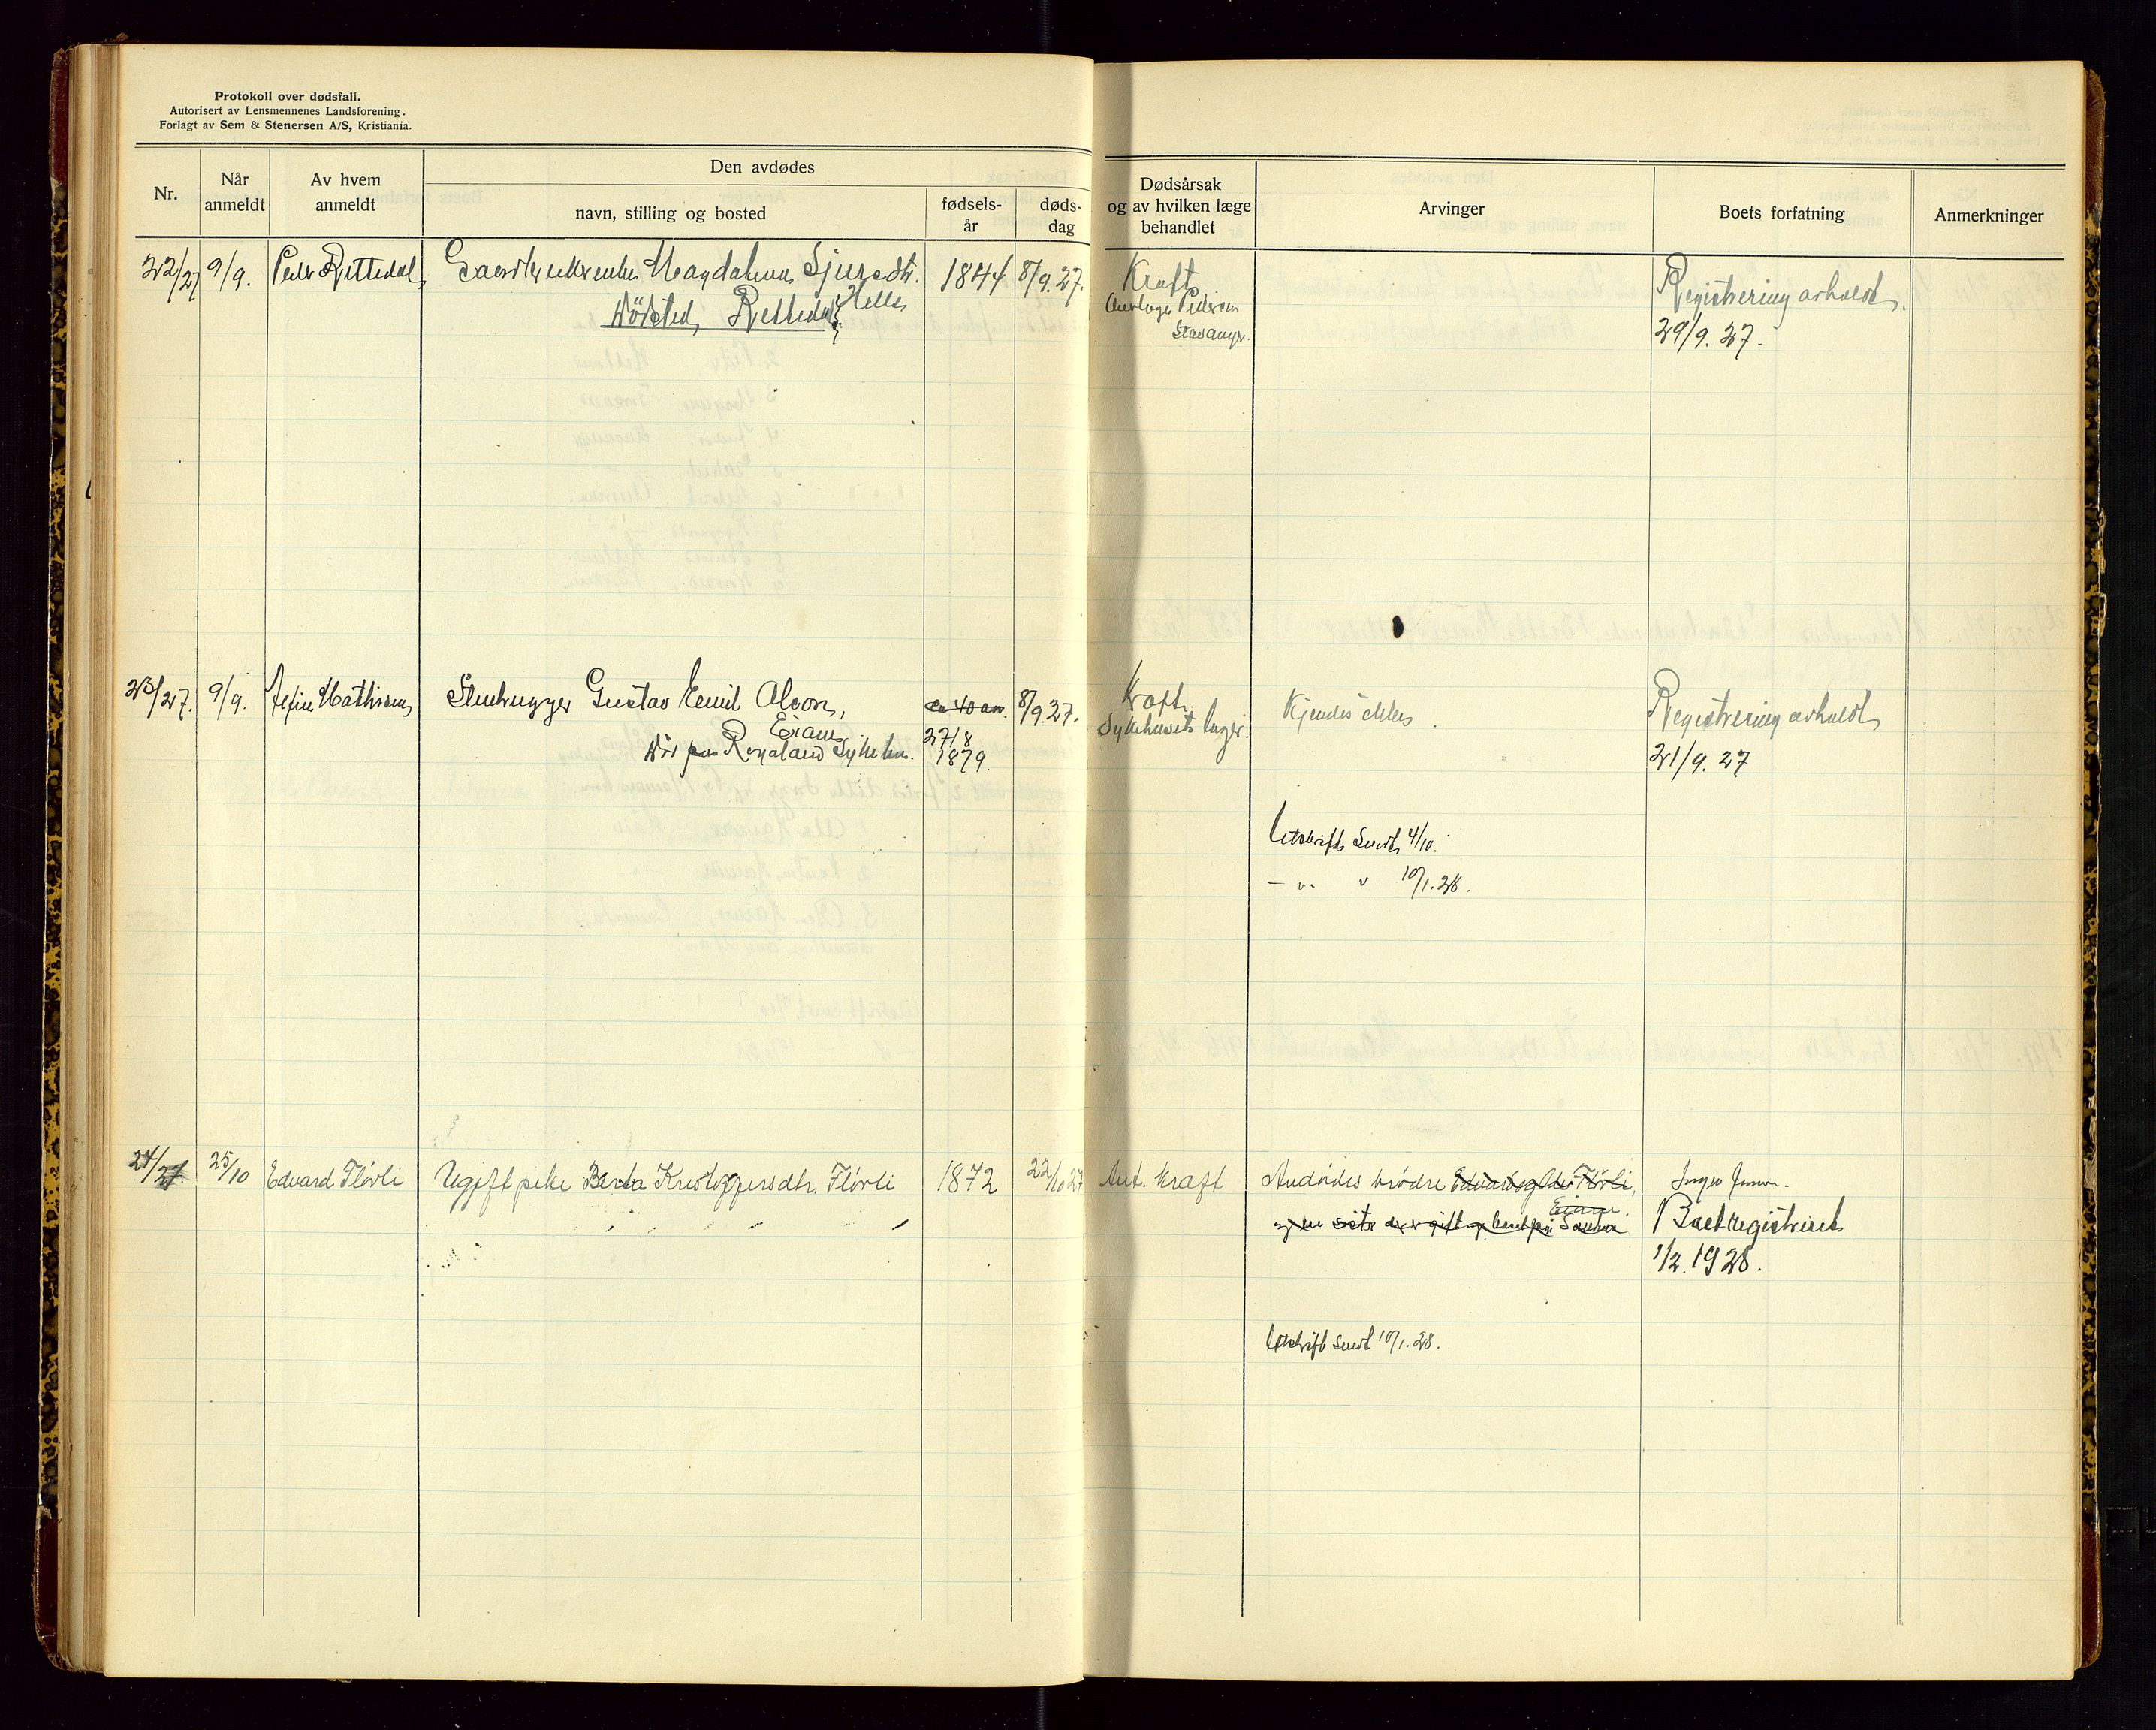 Protokoll over dødsfall.
Autorisert av Lensmennenes Landsforening.
Forlagt av Sem & Stenersen A/S, Kristiania.
Nr.
Når
anmeldt
Av hvem
anmeldt
Den avdødes
navn, stilling og bosted
fødsels-
år
døds-
dag
Dødsårsak
og av hvilken læge
behandlet
Arvinger
Boets forfatning
Anmerkninger
22/27
9/9.
Peder Rettedal
Gaardbrukerenke Magdalena Sjursdtr.
Helle
Dødsted, Rettedal
1844
8/9.27.
Kraft
Pedersen
Stavanger.
Registrering avholdt
29/9. 27.
23/27.
9/9.
Mathisen
Stenhugger Gustav Emil Olson,
Eiane
Død paa Rogaland Sykehus.
ca 40 aar.
27/8
1879.
8/9.27.
Kraft.
Sykehusets læger.
Kjendes ikke.
Registrering avholdt
21/9. 27
Utskrift sendt 4/10.
— " " 10/1.28.
24/27.
25/10
Edvard Flörli
Ugift pike Berta Kristoffersdtr. Flörli
1872
22/10 27
Ant. Kraft
Avdödes brödre Edvard og Ole Flörli,
Eiane.
og en söster der er gift og bor på
Ingen
Boet registrert
1/2. 1928.
Utskrift sendt 10/1.28.